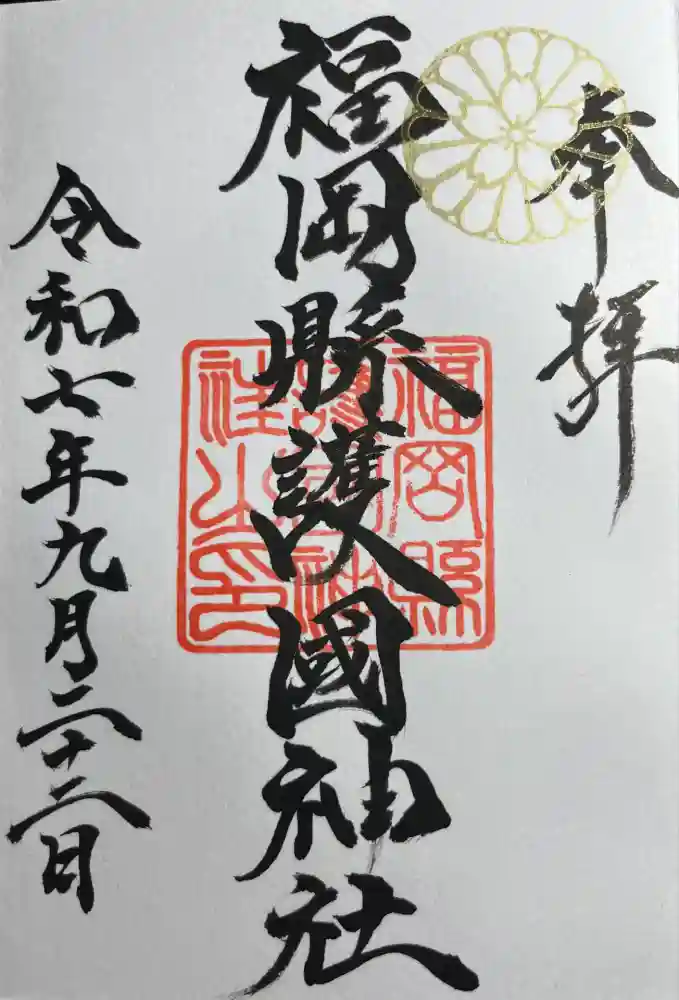 奉拝
福岡縣護國神社
福岡縣
護國神
社之印
令和七年九月二十二日